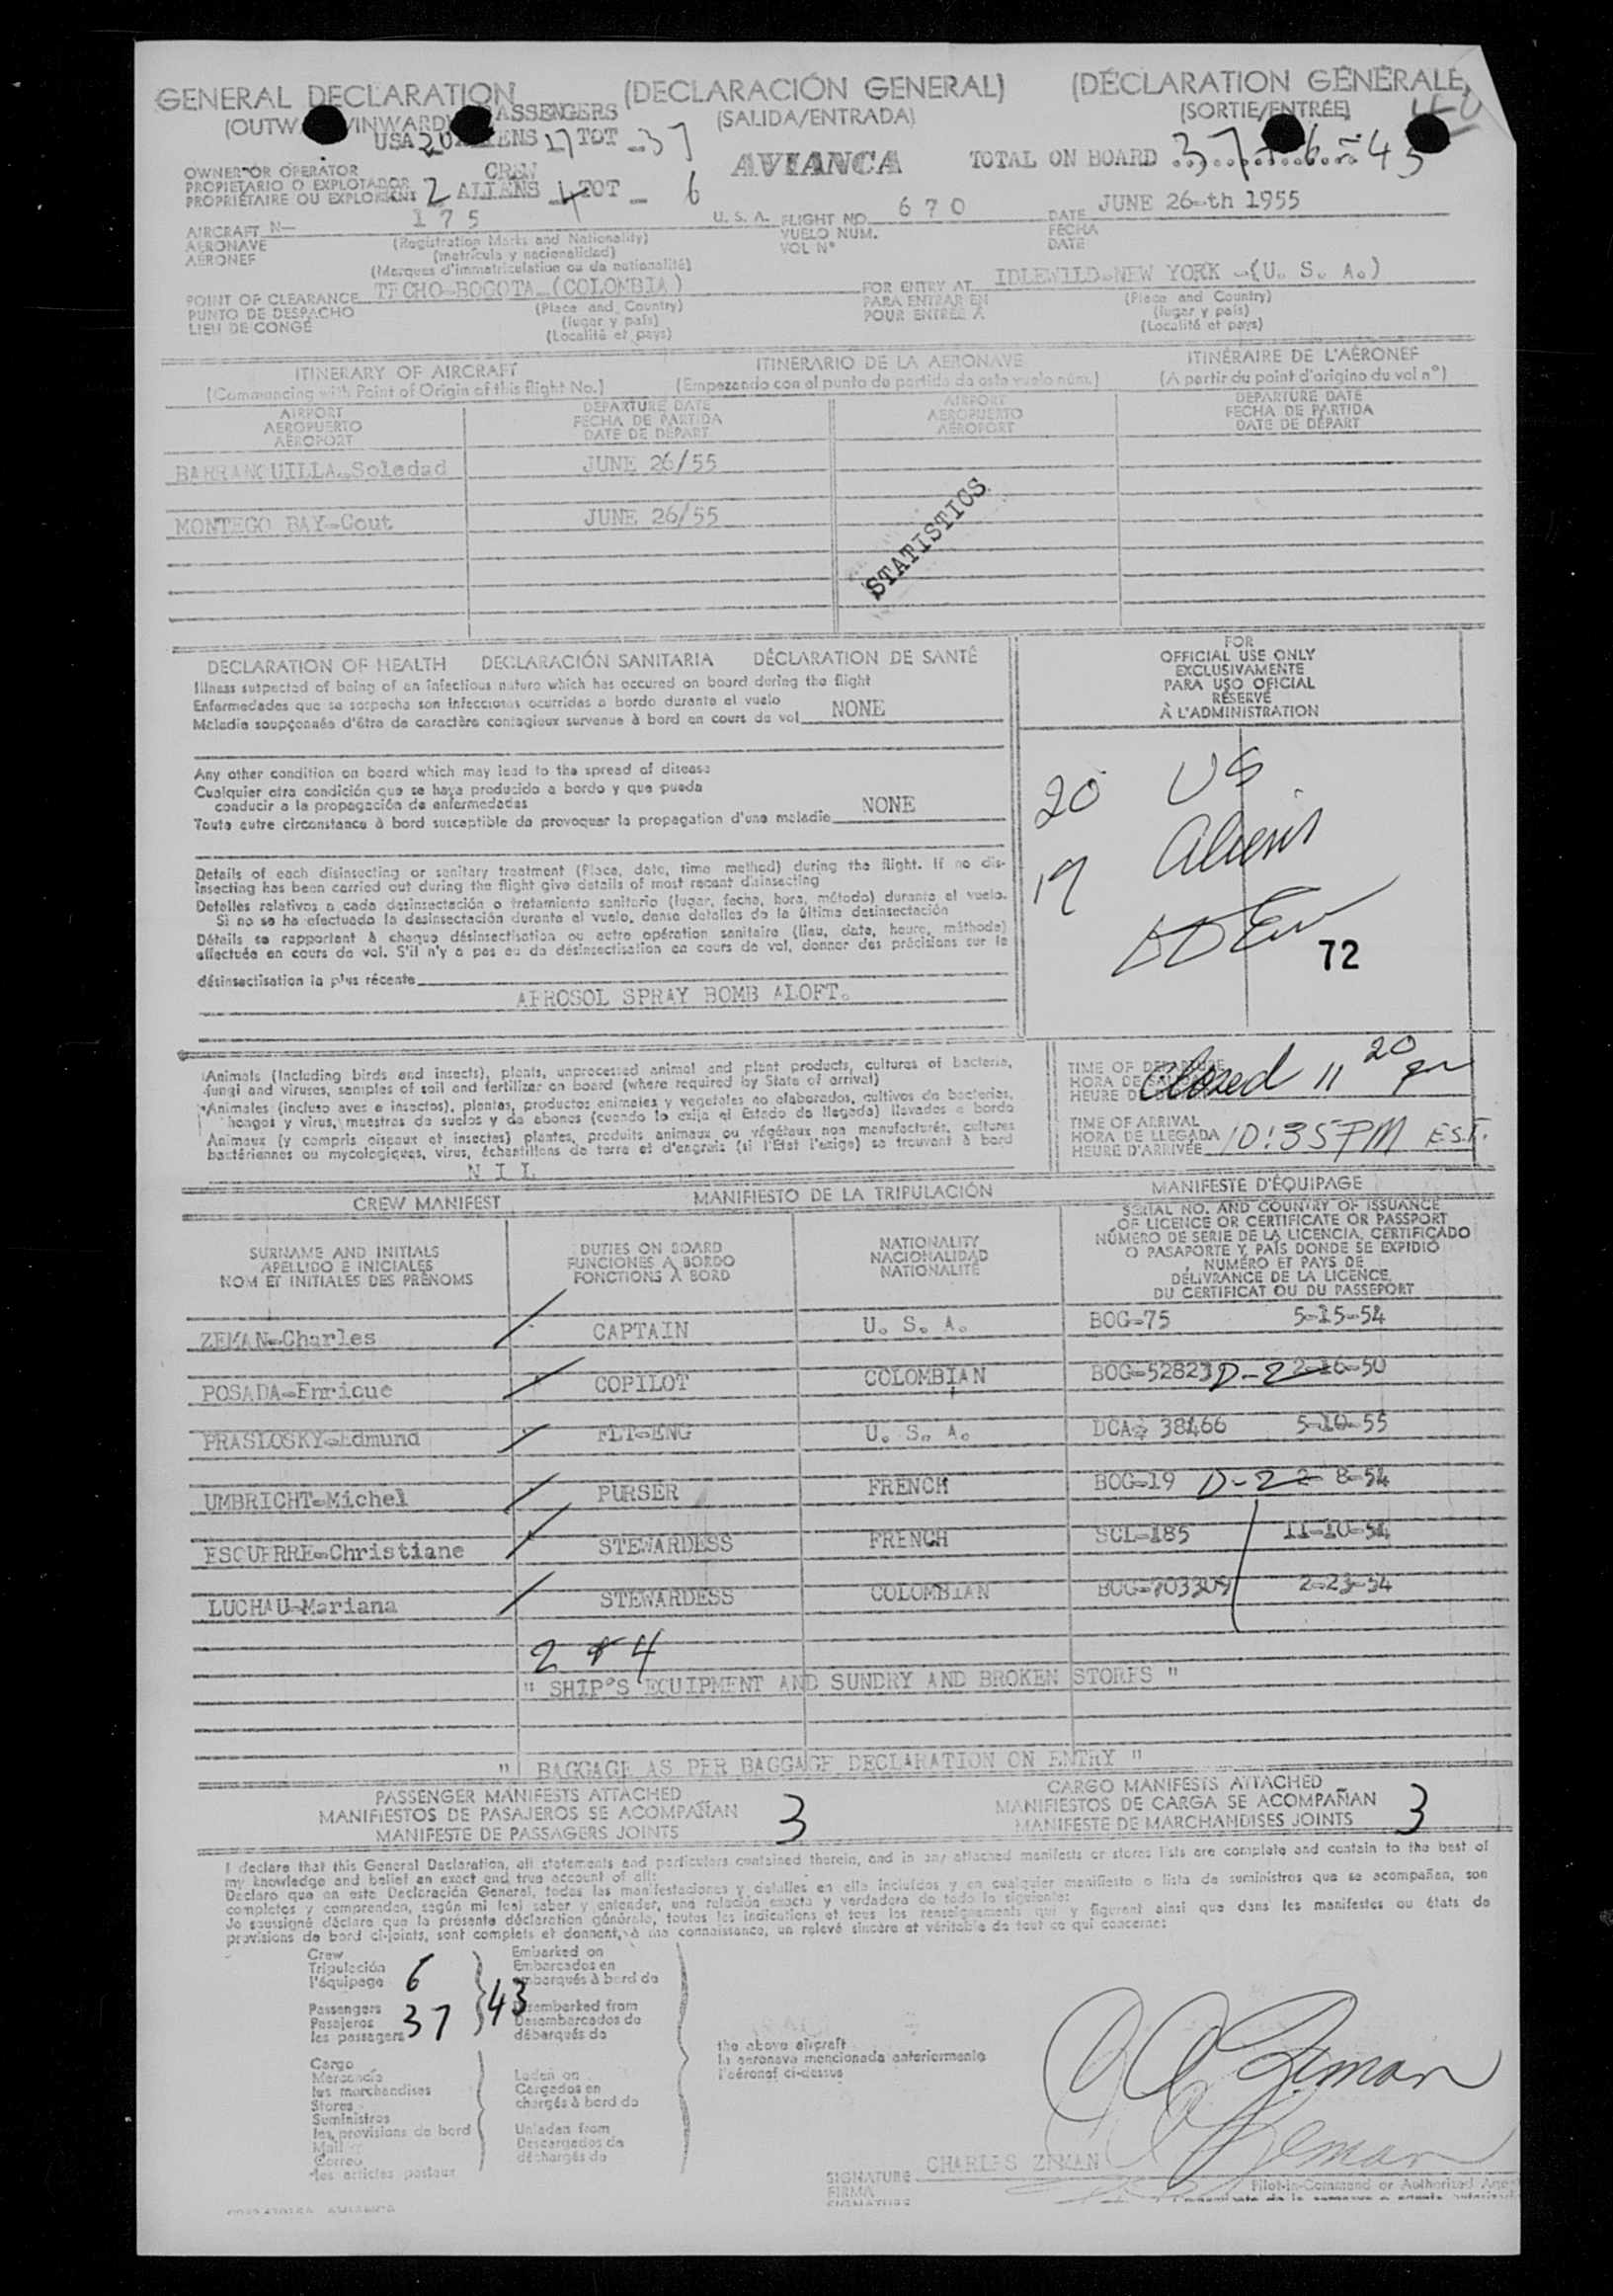 GENERAL DECLARATION (DECLARACIÓN GENERAL) (DÉCLARATION GÉNÉRALE)
(OUTW /INWARD) PASSENGERS (SALIDA/ENTRADA) (SORTIE/ENTRÉE)
USA 20 ALIENS 17 TOT 37
OWNER OR OPERATOR CREW AVIANCA TOTAL ON BOARD 37-6-43
PROPIETARIO O EXPLOTADOR 2 ALIENS 4 TOT 6
PROPRIÉTAIRE OU EXPLOITANT
AIRCRAFT N- 175 U. S. A. FLIGHT NO. 670 DATE JUNE 26-th 1955
AERONAVE (Registration Marks and Nationality) VUELO NUM. FECHA
AÉRONEF (matrícula y nacionalidad) VOL Nº DATE
(Marques d'immatriculation ou de nationalité)
POINT OF CLEARANCE TECHO-BOGOTA (COLOMBIA) FOR ENTRY AT IDLEWILD-NEW YORK -(U. S. A.)
PUNTO DE DESPACHO (Place and Country) PARA ENTRAR EN (Place and Country)
LIEU DE CONGÉ (lugar y país) POUR ENTRÉE À (lugar y país)
(Localité et pays) (Localité et pays)
ITINERARY OF AIRCRAFT ITINERARIO DE LA AERONAVE ITINÉRAIRE DE L'AÉRONEF
(Commencing with Point of Origin of this flight No.) (Empezando con el punto de partida de este vuelo núm.) (A partir du point d'origine du vol nº)
AIRPORT DEPARTURE DATE AIRPORT DEPARTURE DATE
AEROPUERTO FECHA DE PARTIDA AEROPUERTO FECHA DE PARTIDA
AÉROPORT DATE DE DÉPART AÉROPORT DATE DE DÉPART
BARRANQUILLA-Soledad JUNE 26/55
MONTEGO BAY-Cout JUNE 26/55
STATISTICS
DECLARATION OF HEALTH DECLARACIÓN SANITARIA DÉCLARATION DE SANTÉ
Illness suspected of being of an infectious nature which has occured on board during the flight
Enfermedades que se sospecha son infecciosas ocurridas a bordo durante el vuelo
Maladie soupçonnée d'être de caractère contagieux survenue à bord en cours de vol NONE
Any other condition on board which may lead to the spread of disease
Cualquier otra condición que se haya producido a bordo y que pueda
conducir a la propagación de enfermedades
Toute autre circonstance à bord susceptible de provoquer la propagation d'une maladie NONE
Details of each disinsecting or sanitary treatment (Place, date, time method) during the flight. If no dis-
insecting has been carried out during the flight give details of most recent disinsecting
Detalles relativos a cada desinsectación o tratamiento sanitario (lugar, fecha, hora, método) durante el vuelo.
Si no se ha efectuado la desinsectación durante el vuelo, dense detalles de la última desinsectación
Détails se rapportant à chaque désinsectisation ou autre opération sanitaire (lieu, date, heure, méthode)
effectuée en cours de vol. S'il n'y a pas eu de désinsectisation en cours de vol, donner des précisions sur la
désinsectisation la plus récente
AEROSOL SPRAY BOMB ALOFT.
FOR
OFFICIAL USE ONLY
EXCLUSIVAMENTE
PARA USO OFICIAL
RÉSERVÉ
À L'ADMINISTRATION
20 US
17 Aliens
72
Animals (Including birds and insects), plants, unprocessed animal and plant products, cultures of bacteria,
fungi and viruses, samples of soil and fertilizer on board (where required by State of arrival)
Animales (incluso aves e insectos), plantas, productos animales y vegetales no elaborados, cultivos de bacterias,
hongos y virus, muestras de suelos y de abonos (cuando lo exija el Estado de llegada) llevados a bordo
Animaux (y compris oiseaux et insectes) plantes, produits animaux ou végétaux non manufacturés, cultures
bactériennes ou mycologiques, virus, échantillons de terre et d'engrais (si l'État l'exige) se trouvant à bord
NIL
TIME OF DEPARTURE
HORA DE SALIDA Closed 11 20 pm
HEURE D
TIME OF ARRIVAL
HORA DE LLEGADA 10:35 PM E.S.T.
HEURE D'ARRIVÉE
CREW MANIFEST MANIFIESTO DE LA TRIPULACIÓN MANIFESTE D'ÉQUIPAGE
SURNAME AND INITIALS
APELLIDO E INICIALES
NOM ET INITIALES DES PRÉNOMS
DUTIES ON BOARD
FUNCIONES A BORDO
FONCTIONS À BORD
NATIONALITY
NACIONALIDAD
NATIONALITÉ
SERIAL NO. AND COUNTRY OF ISSUANCE
OF LICENCE OR CERTIFICATE OR PASSPORT
NÚMERO DE SERIE DE LA LICENCIA, CERTIFICADO
O PASAPORTE Y PAÍS DONDE SE EXPIDIÓ
NUMÉRO ET PAYS DE
DÉLIVRANCE DE LA LICENCE,
DU CERTIFICAT OU DU PASSEPORT
ZEMAN-Charles CAPTAIN U. S. A. BOG-75 5-15-54
POSADA-Enrique COPILOT COLOMBIAN BOG-52823 D-2 2-16-50
PRASLOSKY-Edmund FLT-ENG U. S. A. DCA- 38466 5-10-55
UMBRICHT-Michel PURSER FRENCH BOG-19 D-2 2-8-54
ESQUERRE-Christiane STEWARDESS FRENCH SCL-185 11-10-54
LUCHAU-Mariana STEWARDESS COLOMBIAN BOG-703309 2-23-54
2 + 4
" SHIP'S EQUIPMENT AND SUNDRY AND BROKEN STORES "
" BAGGAGE AS PER BAGGAGE DECLARATION ON ENTRY "
PASSENGER MANIFESTS ATTACHED CARGO MANIFESTS ATTACHED
MANIFIESTOS DE PASAJEROS SE ACOMPAÑAN 3 MANIFIESTOS DE CARGA SE ACOMPAÑAN 3
MANIFESTE DE PASSAGERS JOINTS MANIFESTE DE MARCHANDISES JOINTS
I declare that this General Declaration, all statements and particulars contained therein, and in any attached manifests or stores lists are complete and contain to the best of
my knowledge and belief an exact and true account of all:
Declaro que en esta Declaración General, todas las manifestaciones y detalles en ella incluídos y en cualquier manifiesto o lista de suministros que se acompañan, son
completos y comprenden, según mi leal saber y entender, una relación exacta y verdadera de todo lo siguiente:
Je soussigné déclare que la présente déclaration générale, toutes les indications et tous les renseignements qui y figurent ainsi que dans les manifestes ou états de
provisions de bord ci-joints, sont complets et donnent, à ma connaissance, un relevé sincère et véritable de tout ce qui concerne:
Crew
Tripulación
l'équipage 6
Passengers
Pasajeros
les passagers 37
43
Embarked on
Embarcados en
embarqués à bord de
Disembarked from
Desembarcados de
débarqués de
Cargo
Mercancía
les marchandises
Stores
Suministros
les provisions de bord
Mail
Correo
les articles postaux
Laden on
Cargados en
chargés à bord de
Unladen from
Descargados de
déchargés de
the above aircraft
la aeronave mencionada anteriormente
l'aéronef ci-dessus
C C Zeman
C C Zeman
SIGNATURE CHARLES ZEMAN
FIRMA Pilot-in-Command or Authorized Agent
SIGNATURE